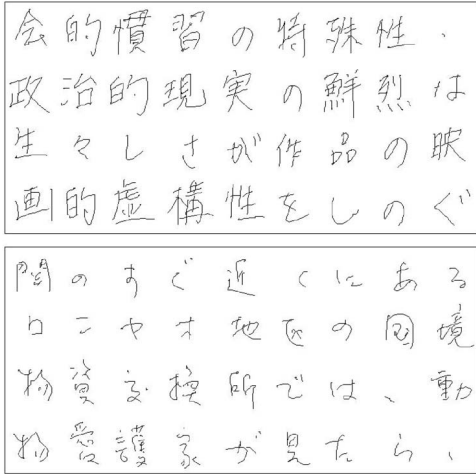 会的慣習の特殊性、
政治的現実の鮮烈は
生々しさが作品の映
画的虚構性をしのぐ
関のすぐ近くにある
ロニヤオ地区の国境
物資交換所では、動
物愛護家が見たら、